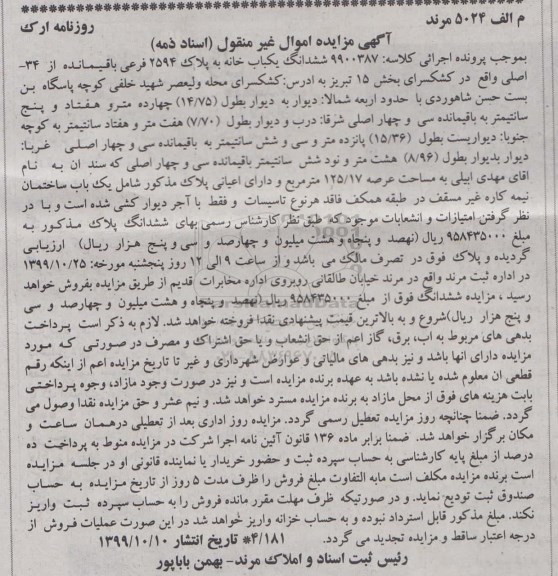 م الف ۵۰۲۴ مرند
روزنامه ارک
آگهی مزایده اموال غیر منقول (اسناد ذمه)
بموجب پرونده اجرائی کلاسه: ۹۹۰۰۳۸۷ ششدانگ یکباب خانه به پلاک ۲۵۹۴ فرعی باقیمانده از ۳۴-
اصلی واقع در کشکسرای بخش ۱۵ تبریز به ادرس:کشکسرای محله ولیعصر شهید خلفی کوچه پاسگاه بن
بست حسن شاهوردی با حدود اربعه شمالا: دیوار به دیوار بطول (۱۴/۷۵) چهارده مترو هفتاد و پنج
سانتیمتر به باقیمانده سی و چهار اصلی شرقا: درب و دیوار بطول (۷/۷۰) هفت متر و هفتاد سانتیمتر به کوچه
جنوبا: دیواریست بطول (۱۵/۳۶) پانزده متر و سی و شش سانتیمتر به باقیمانده سی و چهار اصلی غربا:
دیوار بدیوار بطول (۸/۹۶) هشت متر و نود شش سانتیمتر باقیمانده سی و چهار اصلی که سند ان به نام
اقای مهدی ابیلی به مساحت عرصه ۱۲۵/۱۷ مترمربع و دارای اعیانی پلاک مذکور شامل یک باب ساختمان
نیمه کاره غیر مسقف در طبقه همکف فاقد هرنوع تاسیسات و فقط با آجر دیوار کشی شده است و با در
نظر گرفتن امتیازات و انشعابات موجود که طبق نظر کارشناس رسمی بهای ششدانگ پلاک مذکور به
مبلغ ۹۵۸۴۳۵۰۰۰ ریال (نهصد و پنجاه و هشت میلیون و چهارصد و سی و پنج هزار ریال) ارزیابی
گردیده و پلاک فوق در تصرف مالک می باشد و از ساعت ۹ الی ۱۲ روز پنجشنبه مورخه: ۱۳۹۹/۱۰/۲۵
در اداره ثبت مرند واقع در مرند خیابان طالقانی روبروی اداره مخابرات قدیم از طریق مزایده بفروش خواهد
رسید ، مزایده ششدانگ فوق از مبلغ ۹۵۸۴۳۵۰۰۰ ریال (نهصد و پنجاه و هشت میلیون و چهارصد و سی
و پنج هزار ریال)شروع و به بالاترین قیمت پیشنهادی نقدا فروخته خواهد شد. لازم به ذکر است پرداخت
بدهی های مربوط به اب، برق، گاز اعم از حق انشعاب و یا حق اشتراک و مصرف در صورتی که مورد
مزایده دارای انها باشد و نیز بدهی های مالیاتی و عوارض شهرداری و غیر تا تاریخ مزایده اعم از اینکه رقم
قطعی ان معلوم شده یا نشده باشد به عهده برنده مزایده است و نیز در صورت وجود مازاد، وجوه پرداختی
بابت هزینه های فوق از محل مازاد به برنده مزایده مسترد خواهد شد. و نیم عشر و حق مزایده نقدا وصول می
گردد. ضمنا چنانچه روز مزایده تعطیل رسمی گردد. مزایده روز اداری بعد از تعطیلی درهمان ساعت و
مکان برگزار خواهد شد. ضمنا برابر ماده ۱۳۶ قانون آئین نامه اجرا شرکت در مزایده منوط به پرداخت ده
درصد از مبلغ پایه کارشناسی به حساب سپرده ثبت و حضور خریدار یا نماینده قانونی او در جلسه مزایده
است برنده مزایده مکلف است مابه التفاوت مبلغ فروش را ظرف مدت ۵ روز از تاریخ مزایده به حساب
صندوق ثبت تودیع نماید. و در صورتیکه ظرف مهلت مقرر مانده فروش را به حساب سپرده ثبت واریز
نکند. مبلغ مذکور قابل استرداد نبوده و به حساب خزانه واریز خواهد شد در این صورت عملیات فروش از
درجه اعتبار ساقط و مزایده تجدید می گردد. ۴/۱۸۱* تاریخ انتشار ۱۳۹۹/۱۰/۱۰
رئیس ثبت اسناد و املاک مرند- بهمن باباپور